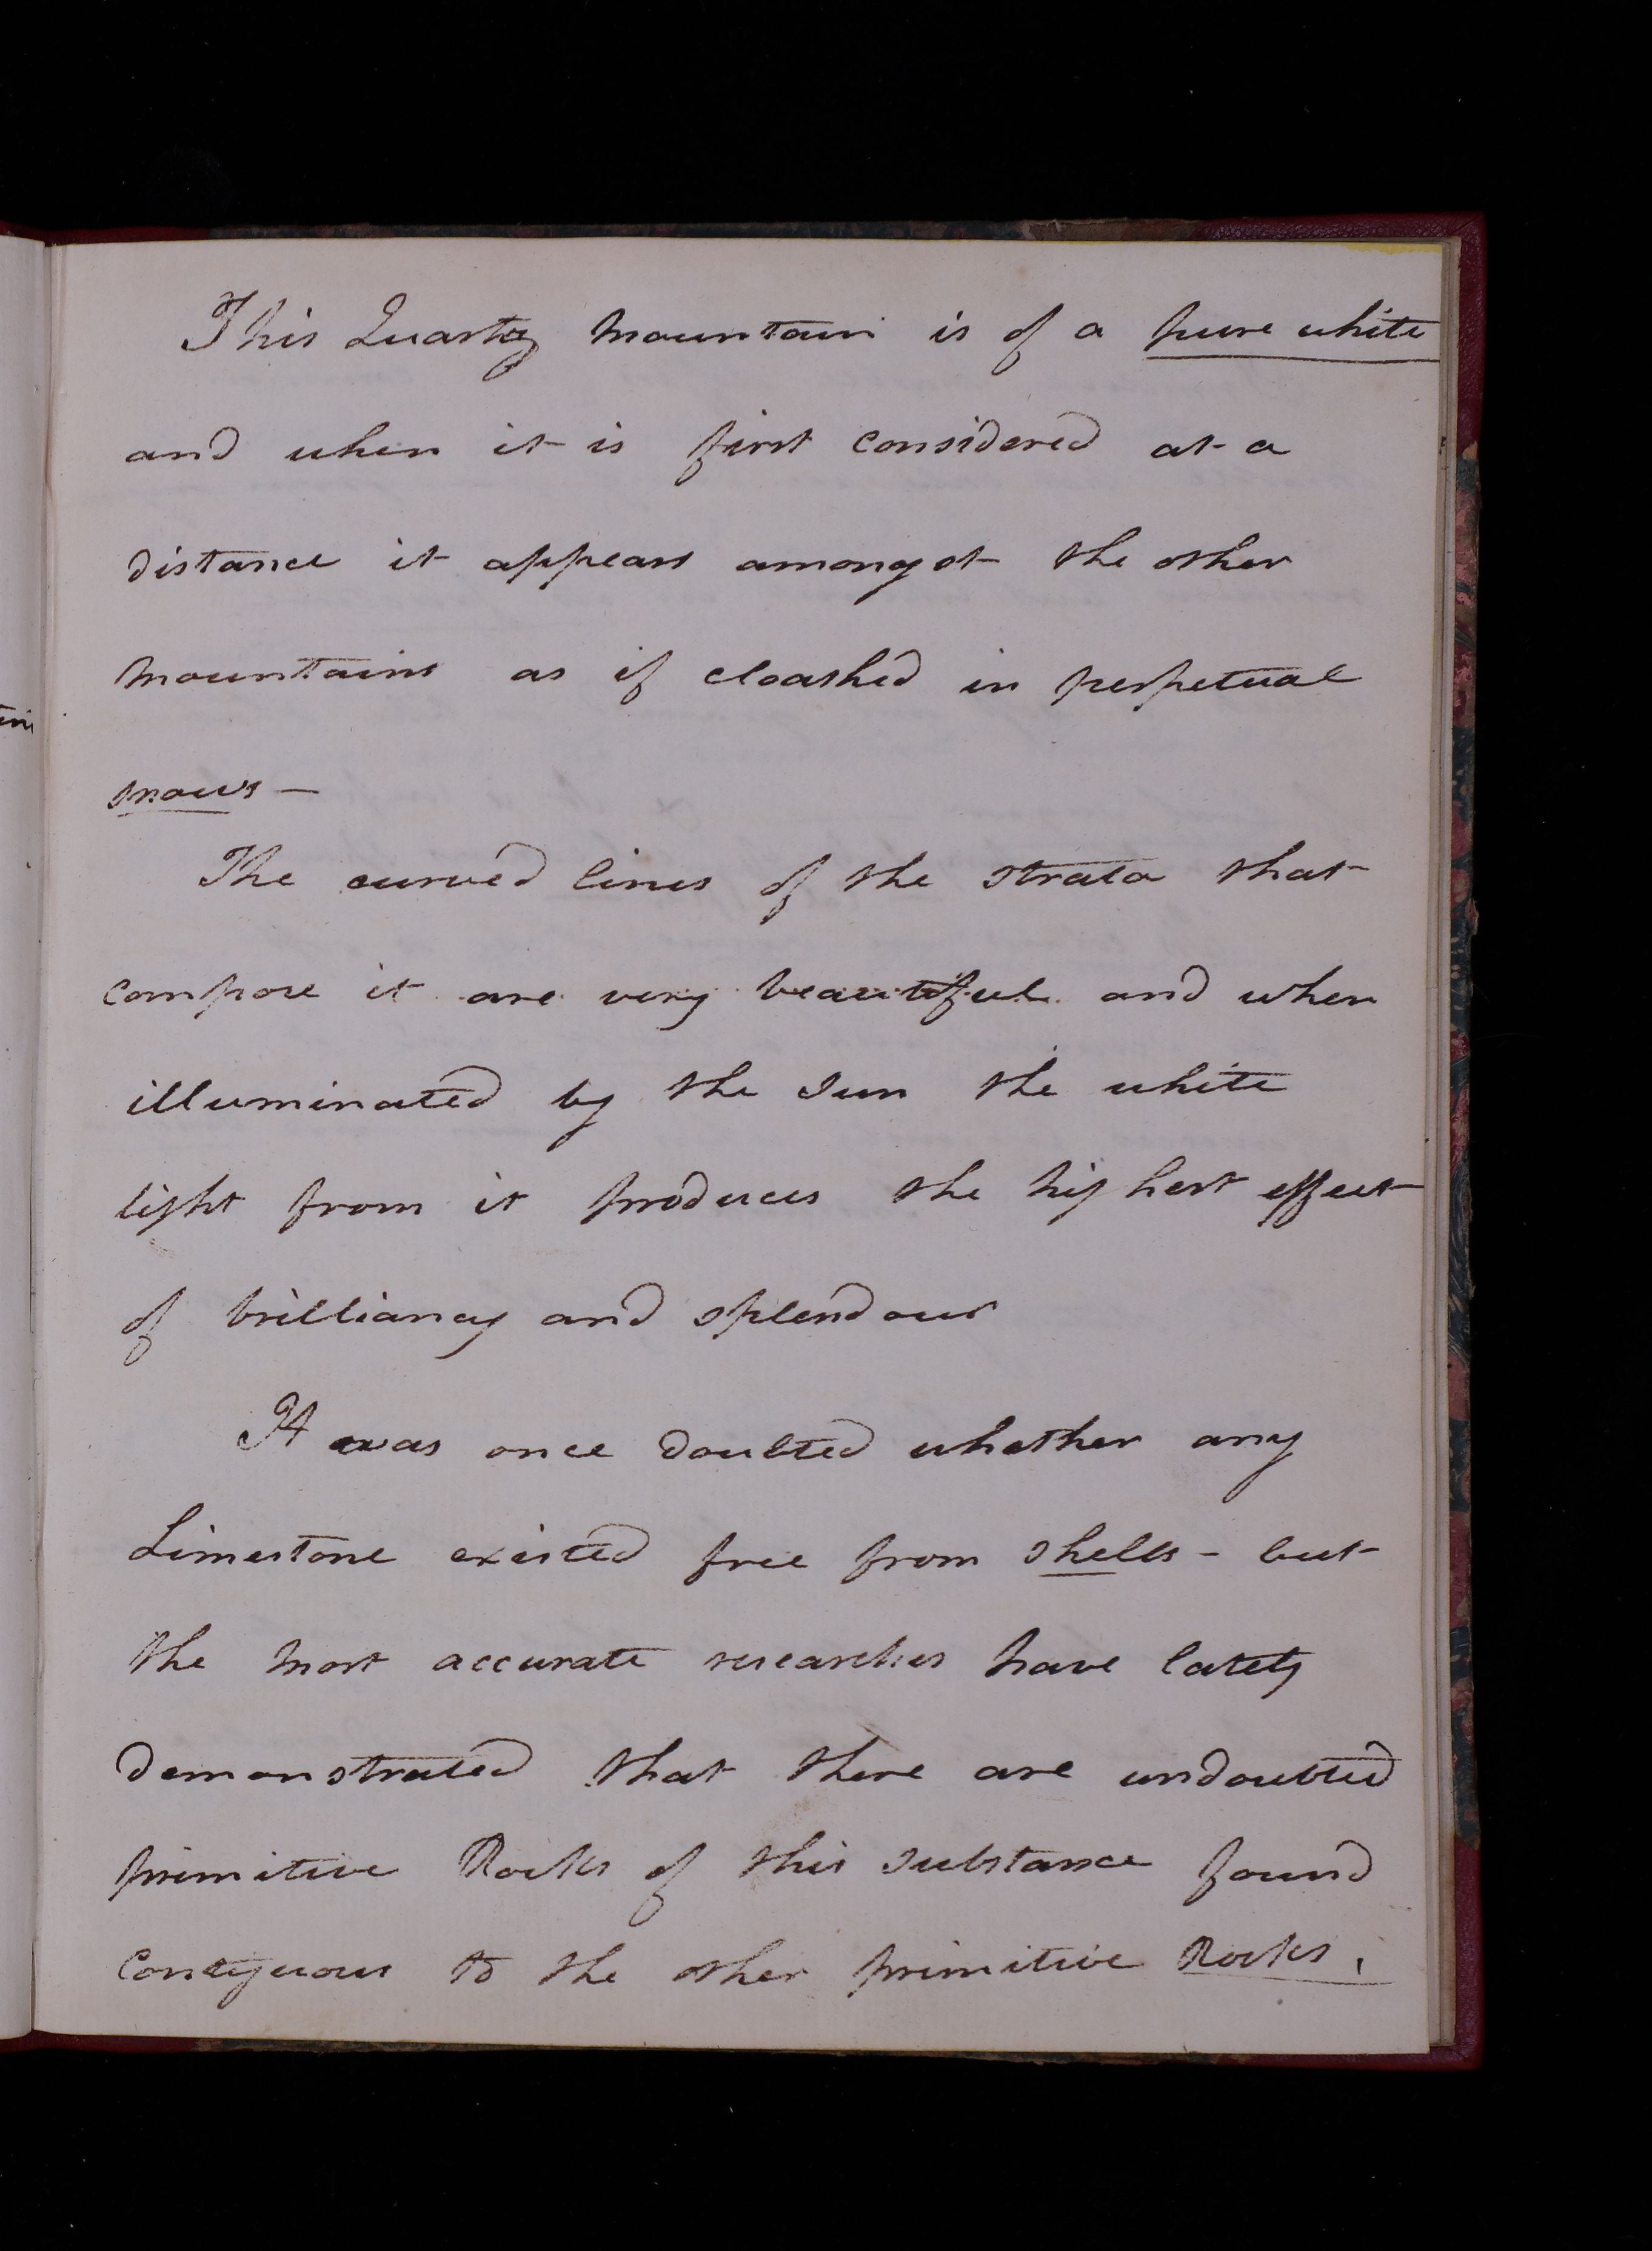 This Quartz mountain is of a pure white
and when it is first considered at a
distance it appears amongst the other
mountains as if cloathed in perpetual
snows —
The curved lines of the strata that
compose it are very beautiful and when
illuminated by the sun the white
light from it produces the highest effect
of brilliancy and splendour
It was once doubted whether any
Limestone existed free from shells - but
the most accurate researches have lately
demonstrated that there are undoubted
primitive Rocks of this substance found
contiguous to the other primitive Rocks.